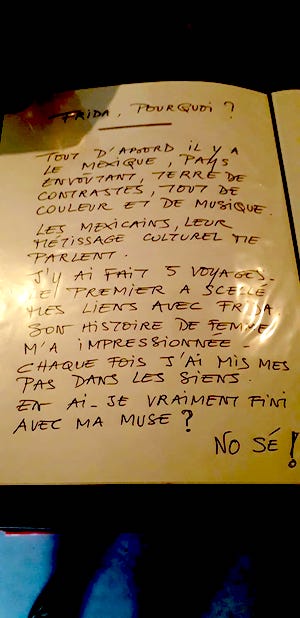 FRIDA, POURQUOI ?
TOUT D'ABORD IL Y A
LE MEXIQUE, PAYS
ENVOÛTANT, TERRE DE
CONTRASTES, TOUT DE
COULEUR ET DE MUSIQUE.
LES MEXICAINS, LEUR
MÉTISSAGE CULTUREL ME
PARLENT.
J'Y AI FAIT 5 VOYAGES_
LE PREMIER A SCELLÉ
MES LIENS AVEC FRIDA.
SON HISTOIRE DE FEMME
M'A IMPRESSIONNÉE_
CHAQUE FOIS J'AI MIS MES
PAS DANS LES SIENS.
EN AI-JE VRAIMENT FINI
AVEC MA MUSE ?
NO SÉ !